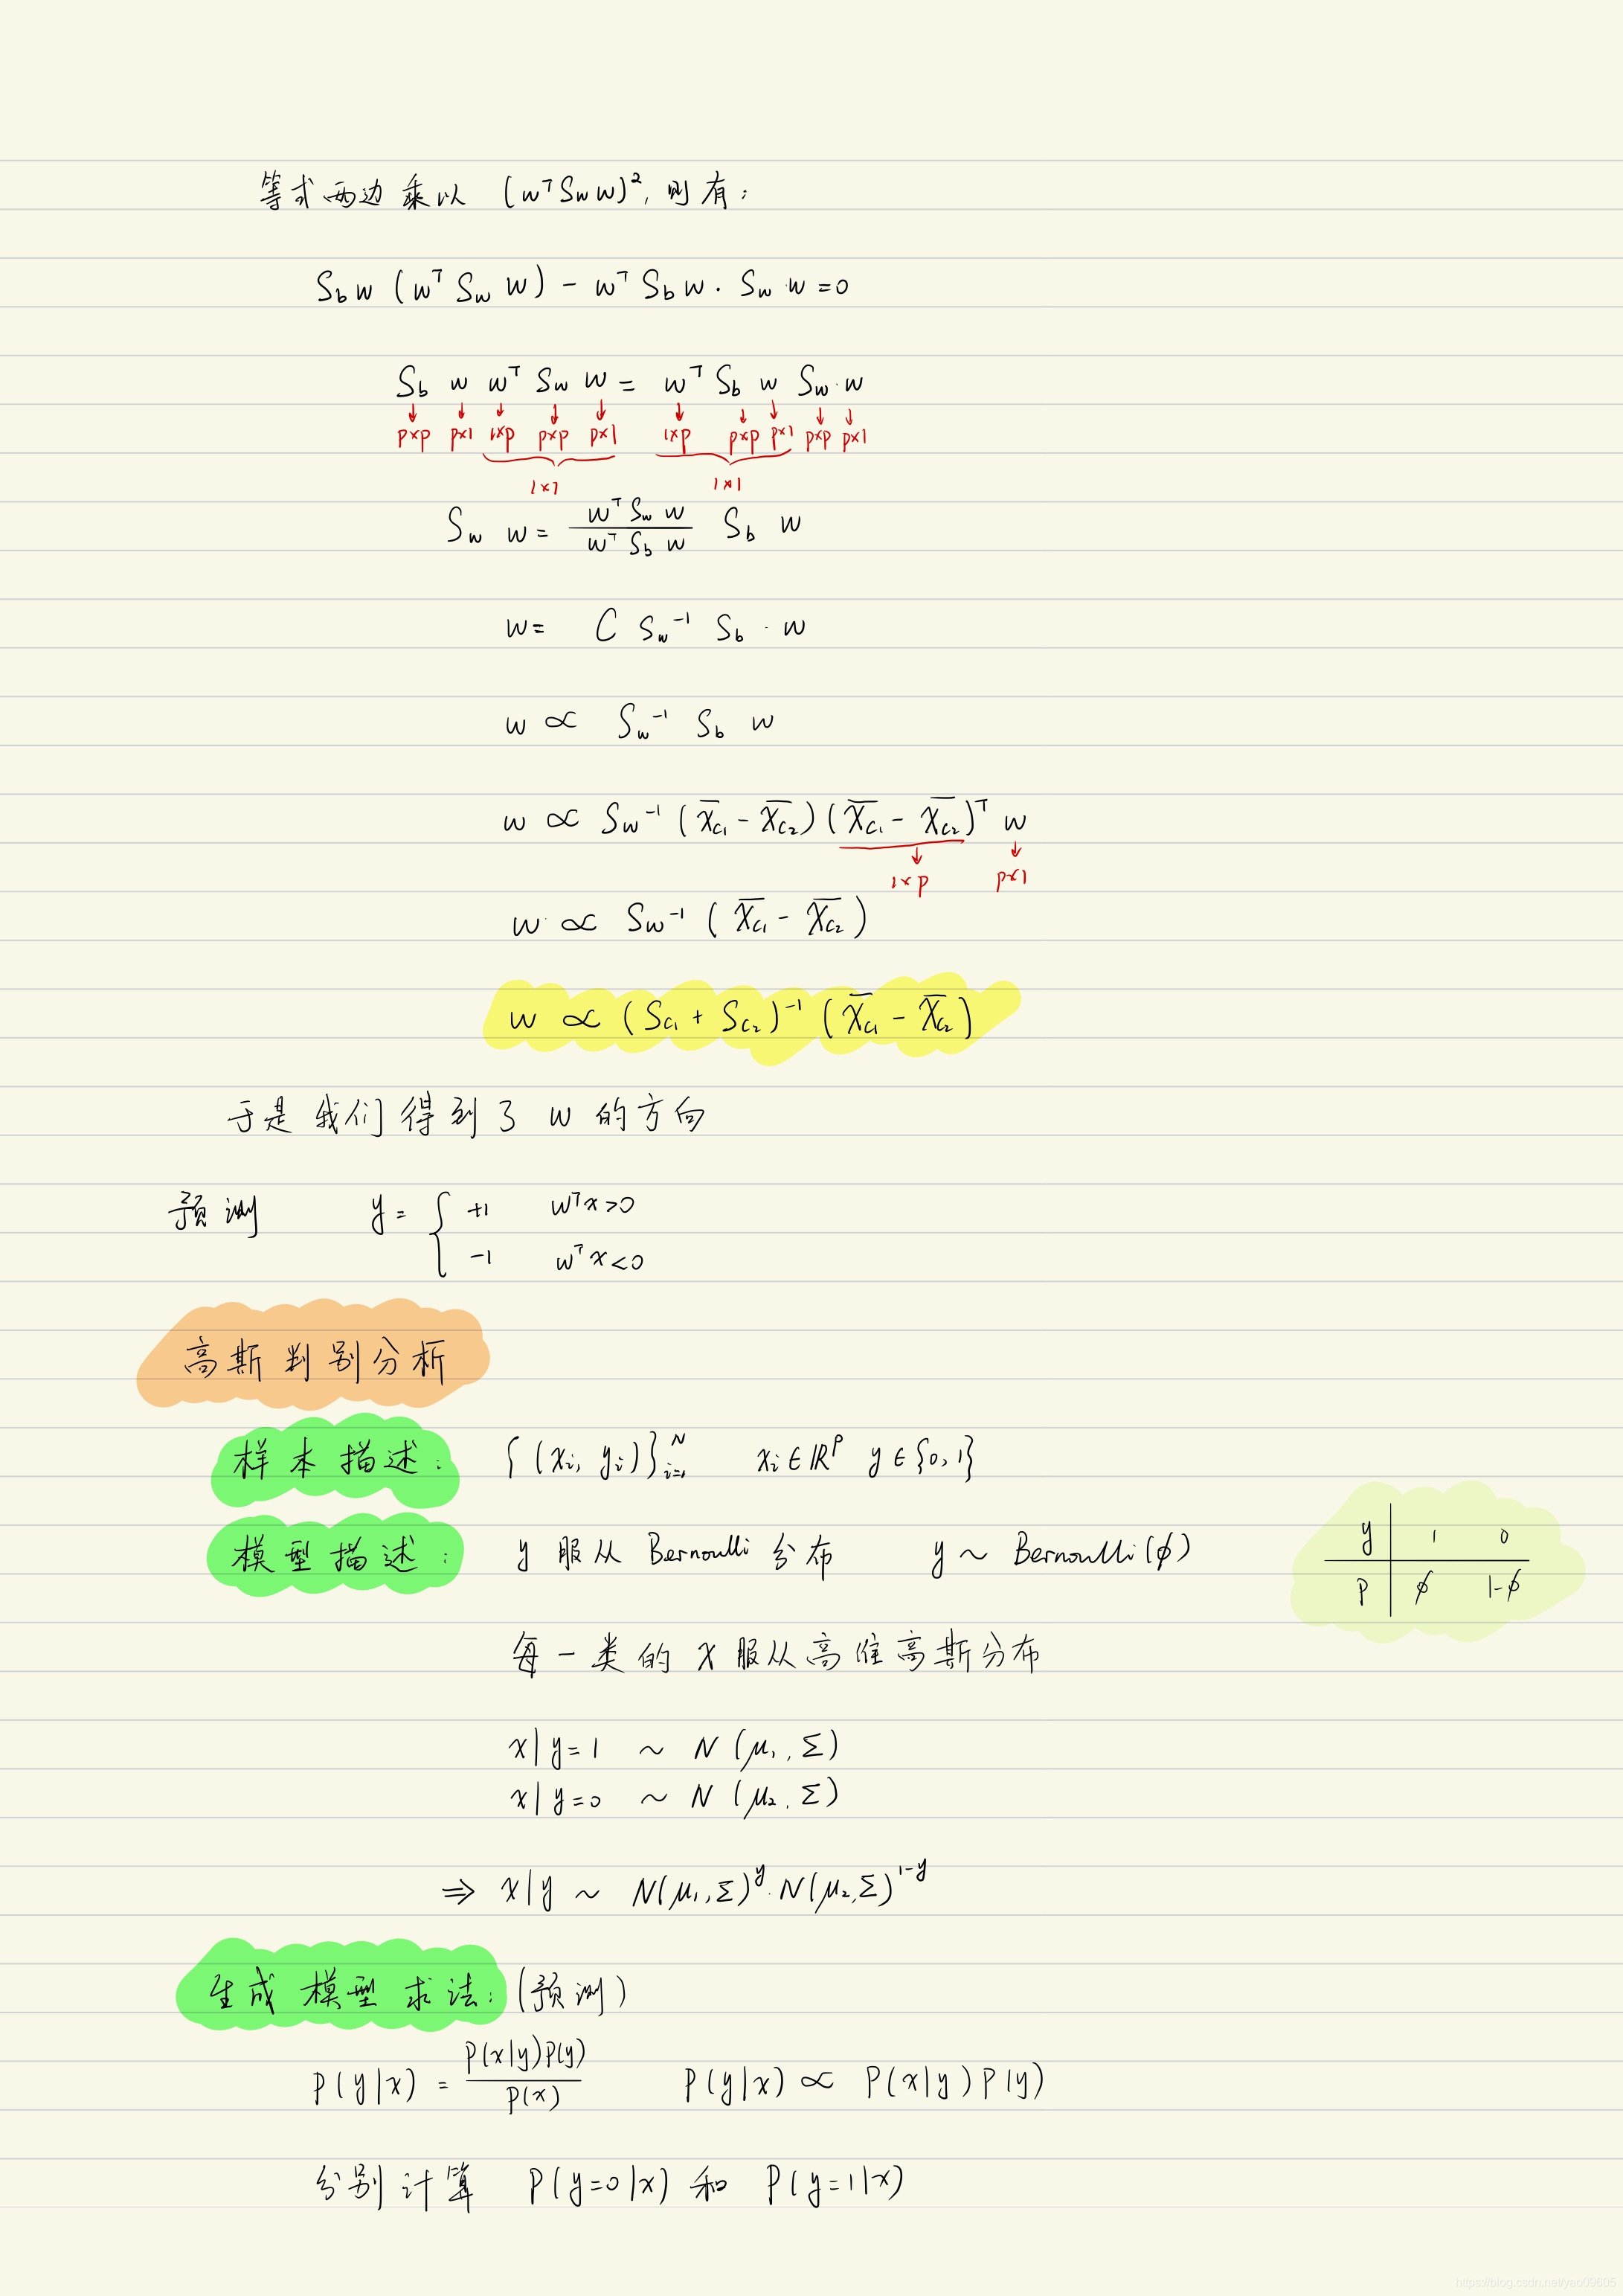 等式两边乘以 (wᵀS_w w)², 则有:
S_b w (wᵀ S_w w) - wᵀ S_b w · S_w · w = 0
S_b w wᵀ S_w w = wᵀ S_b w S_w · w
p×p p×1 1×p p×p p×1 1×p p×p p×1 p×p p×1
1×1 1×1
S_w w = \frac{wᵀ S_w w}{wᵀ S_b w} S_b w
w = C S_w⁻¹ S_b · w
w ∝ S_w⁻¹ S_b w
w ∝ S_w⁻¹ (\overline{X_{C1}} - \overline{X_{C2}}) (\overline{X_{C1}} - \overline{X_{C2}})ᵀ w
1×p p×1
w ∝ S_w⁻¹ (\overline{X_{C1}} - \overline{X_{C2}})
w ∝ (S_{C1} + S_{C2})⁻¹ (\overline{X_{C1}} - \overline{X_{C2}})
于是我们得到了 w 的方向
预测 y = { +1 wᵀx>0
-1 wᵀx<0
高斯判别分析
样本描述: {(x_i, y_i)}_{i=1}^N x_i ∈ ℝᵖ y ∈ {0, 1}
模型描述: y 服从 Bernoulli 分布 y ~ Bernoulli(ϕ)
y 1 0
P ϕ 1-ϕ
每一类的 X 服从高维高斯分布
x|y=1 ~ N(μ₁, Σ)
x|y=0 ~ N(μ₂, Σ)
⇒ x|y ~ N(μ₁, Σ)^y · N(μ₂, Σ)^{1-y}
生成模型求法: (预测)
P(y|x) = \frac{P(x|y)P(y)}{P(x)} P(y|x) ∝ P(x|y)P(y)
分别计算 P(y=0|x) 和 P(y=1|x)
https://blog.csdn.net/yao09605